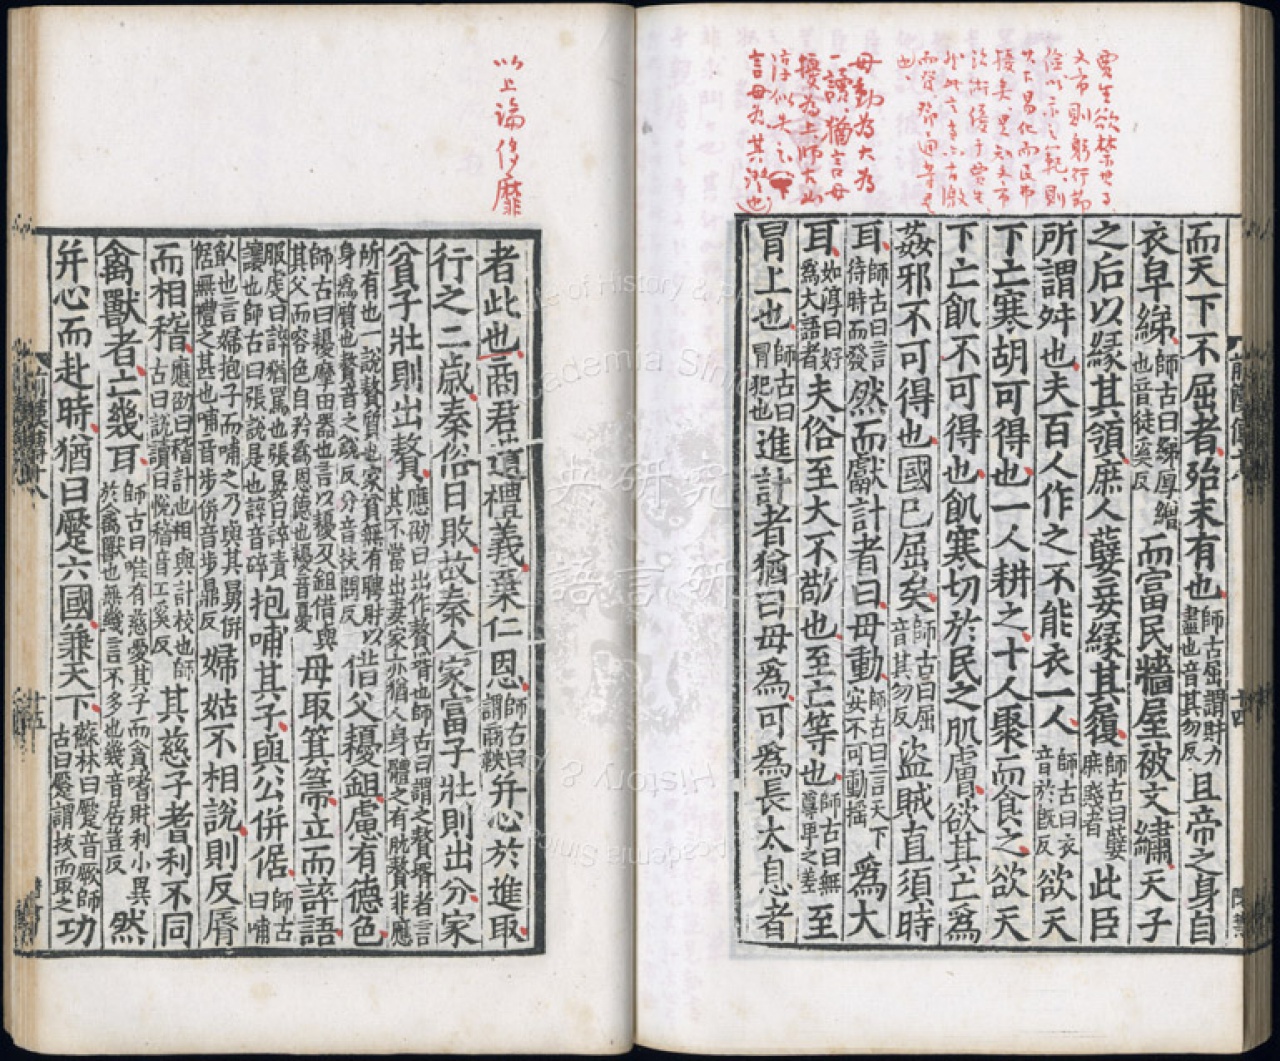 文帝則躬行節
儉以示之範則
毋動為大為
一讀猶言毋
擾為上師古
而天下不屈者殆未有也師古屈謂財力盡也音其勿反且帝之身自
衣皁綈師古曰綈厚繒也音徒奚反而富民牆屋被文繡天子
之后以緣其領庶人孽妾緣其履師古曰孽庶賤者此臣
所謂舛也夫百人作之不能衣一人師古曰衣音於旣反欲天
下亡寒胡可得也一人耕之十人聚而食之欲天
下亡飢不可得也飢寒切於民之肌膚欲其亡爲
姦邪不可得也國已屈矣師古曰屈音其勿反盜賊直須時
耳師古曰言待時而發然而獻計者曰毋動師古曰言天下安不可動搖爲大
耳如淳曰好爲大語者夫俗至大不敬也至亡等也師古曰無尊卑之差至
冒上也師古曰冒犯也進計者猶曰毋爲可爲長太息者
以上論侈靡
者此也商君遺禮義棄仁恩師古曰謂商鞅并心於進取
行之二歲秦俗日敗故秦人家富子壯則出分家
貧子壯則出贅應劭曰出作贅壻也師古曰謂之贅壻者言其不當出妻家亦猶人身體之有肬贅非應
所有也一說贅質也家貧無有聘財以身爲質也贅音之銳反分音扶問反借父耰鉏慮有德色
師古曰耰摩田器也言以耰及鉏借與其父而容色自矜爲恩德也耰音憂毋取箕箒立而誶語
服虔曰誶猶罵也張晏曰誶責讓也師古曰張說是也誶音碎抱哺其子與公倂倨師古曰哺
飤也言婦抱子而哺之乃與其舅倂倨無禮之甚也哺音步倂音步鼎反婦姑不相說則反脣
而相稽應劭曰稽計也相與計校也師古曰說讀曰悅稽音工奚反其慈子耆利不同
禽獸者亡幾耳師古曰唯有慈愛其子而貪嗜財利小異於禽獸也無幾言不多也幾音居豈反然
并心而赴時猶曰蹷六國兼天下蘇林曰蹷音厥師古曰蹷謂拔而取之功
十四
十五